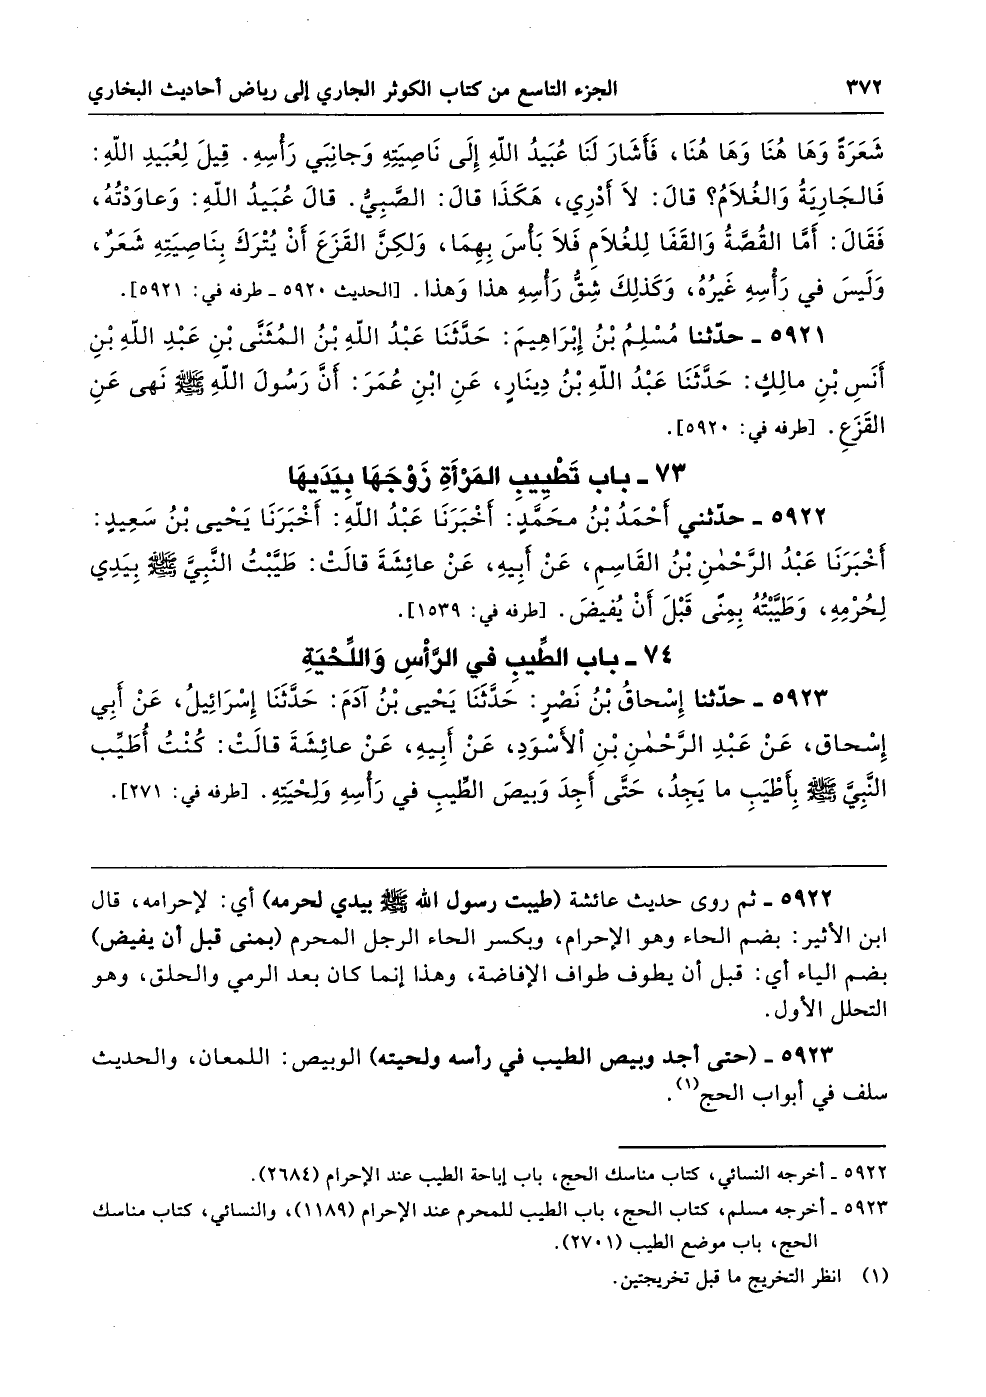 ٣٧٢ الجزء التاسع من كتاب الكوثر الجاري إلى رياض أحاديث البخاري
شَعَرَةً وَهَا هُنَا وَهَا هُنَا، فَأَشَارَ لَنَا عُبَيدُ اللّهِ إِلَى نَاصِيَتِهِ وَجانِبَي رَأْسِهِ. قِيلَ لِعُبَيدِ اللّهِ:
فَالجَارِيَةُ وَالغُلاَمُ؟ قالَ: لاَ أَدْرِي، هَكَذَا قالَ: الصَّبِيُّ. قالَ عُبَيدُ اللّهِ: وَعاوَدْتُهُ،
فَقَالَ: أَمَّا القُصَّةُ وَالقَفَا لِلغُلاَمِ فَلاَ بَأْسَ بِهِمَا، وَلكِنَّ القَزَعَ أَنْ يُتْرَكَ بِنَاصِيَتِهِ شَعَرٌ،
وَلَيسَ في رَأْسِهِ غَيرُهُ، وَكَذلِكَ شِقُّ رَأْسِهِ هذا وَهذا. [الحديث ٥٩٢٠ ـ طرفه في: ٥٩٢١].
٥٩٢١ ـ حدّثنا مُسْلِمُ بْنُ إِبْرَاهِيمَ: حَدَّثَنَا عَبْدُ اللّهِ بْنُ المُثَنَّى بْنِ عَبْدِ اللّهِ بْنِ
أَنَسِ بْنِ مالِكٍ: حَدَّثَنَا عَبْدُ اللّهِ بْنُ دِينَارٍ، عَنِ ابْنِ عُمَرَ: أَنَّ رَسُولَ اللّهِ ﷺ نَهى عَنِ
القَزَعِ. [طرفه في: ٥٩٢٠].
٧٣ ـ باب تَطْيِيبِ المَرْأَةِ زَوْجَهَا بِيَدَيهَا
٥٩٢٢ ـ حدّثني أَحْمَدُ بْنُ محَمَّدٍ: أَخْبَرَنَا عَبْدُ اللّهِ: أَخْبَرَنَا يَحْيى بْنُ سَعِيدٍ:
أَخْبَرَنَا عَبْدُ الرَّحْمٰنِ بْنُ القَاسِمِ، عَنْ أَبِيهِ، عَنْ عائِشَةَ قالَتْ: طَيَّبْتُ النَّبِيَّ ﷺ بِيَدِي
لِحُرْمِهِ، وَطَيَّبْتُهُ بِمِنًى قَبْلَ أَنْ يُفيضَ. [طرفه في: ١٥٣٩].
٧٤ ـ باب الطِّيبِ في الرَّأْسِ وَاللِّحْيَةِ
٥٩٢٣ ـ حدّثنا إِسْحاقُ بْنُ نَصْرٍ: حَدَّثَنَا يَحْيى بْنُ آدَمَ: حَدَّثَنَا إِسْرَائِيلُ، عَنْ أَبِي
إِسْحاق، عَنْ عَبْدِ الرَّحْمٰنِ بْنِ الأَسْوَدِ، عَنْ أَبِيهِ، عَنْ عائِشَةَ قالَتْ: كُنْتُ أُطَيِّب
النَّبِيَّ ﷺ بِأَطْيَبِ ما يَجِدُ، حَتَّى أَجِدَ وَبِيصَ الطِّيبِ في رَأْسِهِ وَلِحْيَتِهِ. [طرفه في: ٢٧١].
٥٩٢٢ ـ ثم روى حديث عائشة (طيبت رسول الله ﷺ بيدي لحرمه) أي: لإحرامه، قال
ابن الأثير: بضم الحاء وهو الإحرام، وبكسر الحاء الرجل المحرم (بمنى قبل أن يفيض)
بضم الياء أي: قبل أن يطوف طواف الإفاضة، وهذا إنما كان بعد الرمي والحلق، وهو
التحلل الأول.
٥٩٢٣ ـ (حتى أجد وبيص الطيب في رأسه ولحيته) الوبيص: اللمعان، والحديث
سلف في أبواب الحج(١).
٥٩٢٢ ـ أخرجه النسائي، كتاب مناسك الحج، باب إباحة الطيب عند الإحرام (٢٦٨٤).
٥٩٢٣ ـ أخرجه مسلم، كتاب الحج، باب الطيب للمحرم عند الإحرام (١١٨٩)، والنسائي، كتاب مناسك
الحج، باب موضع الطيب (٢٧٠١).
(١) انظر التخريج ما قبل تخريجتين.